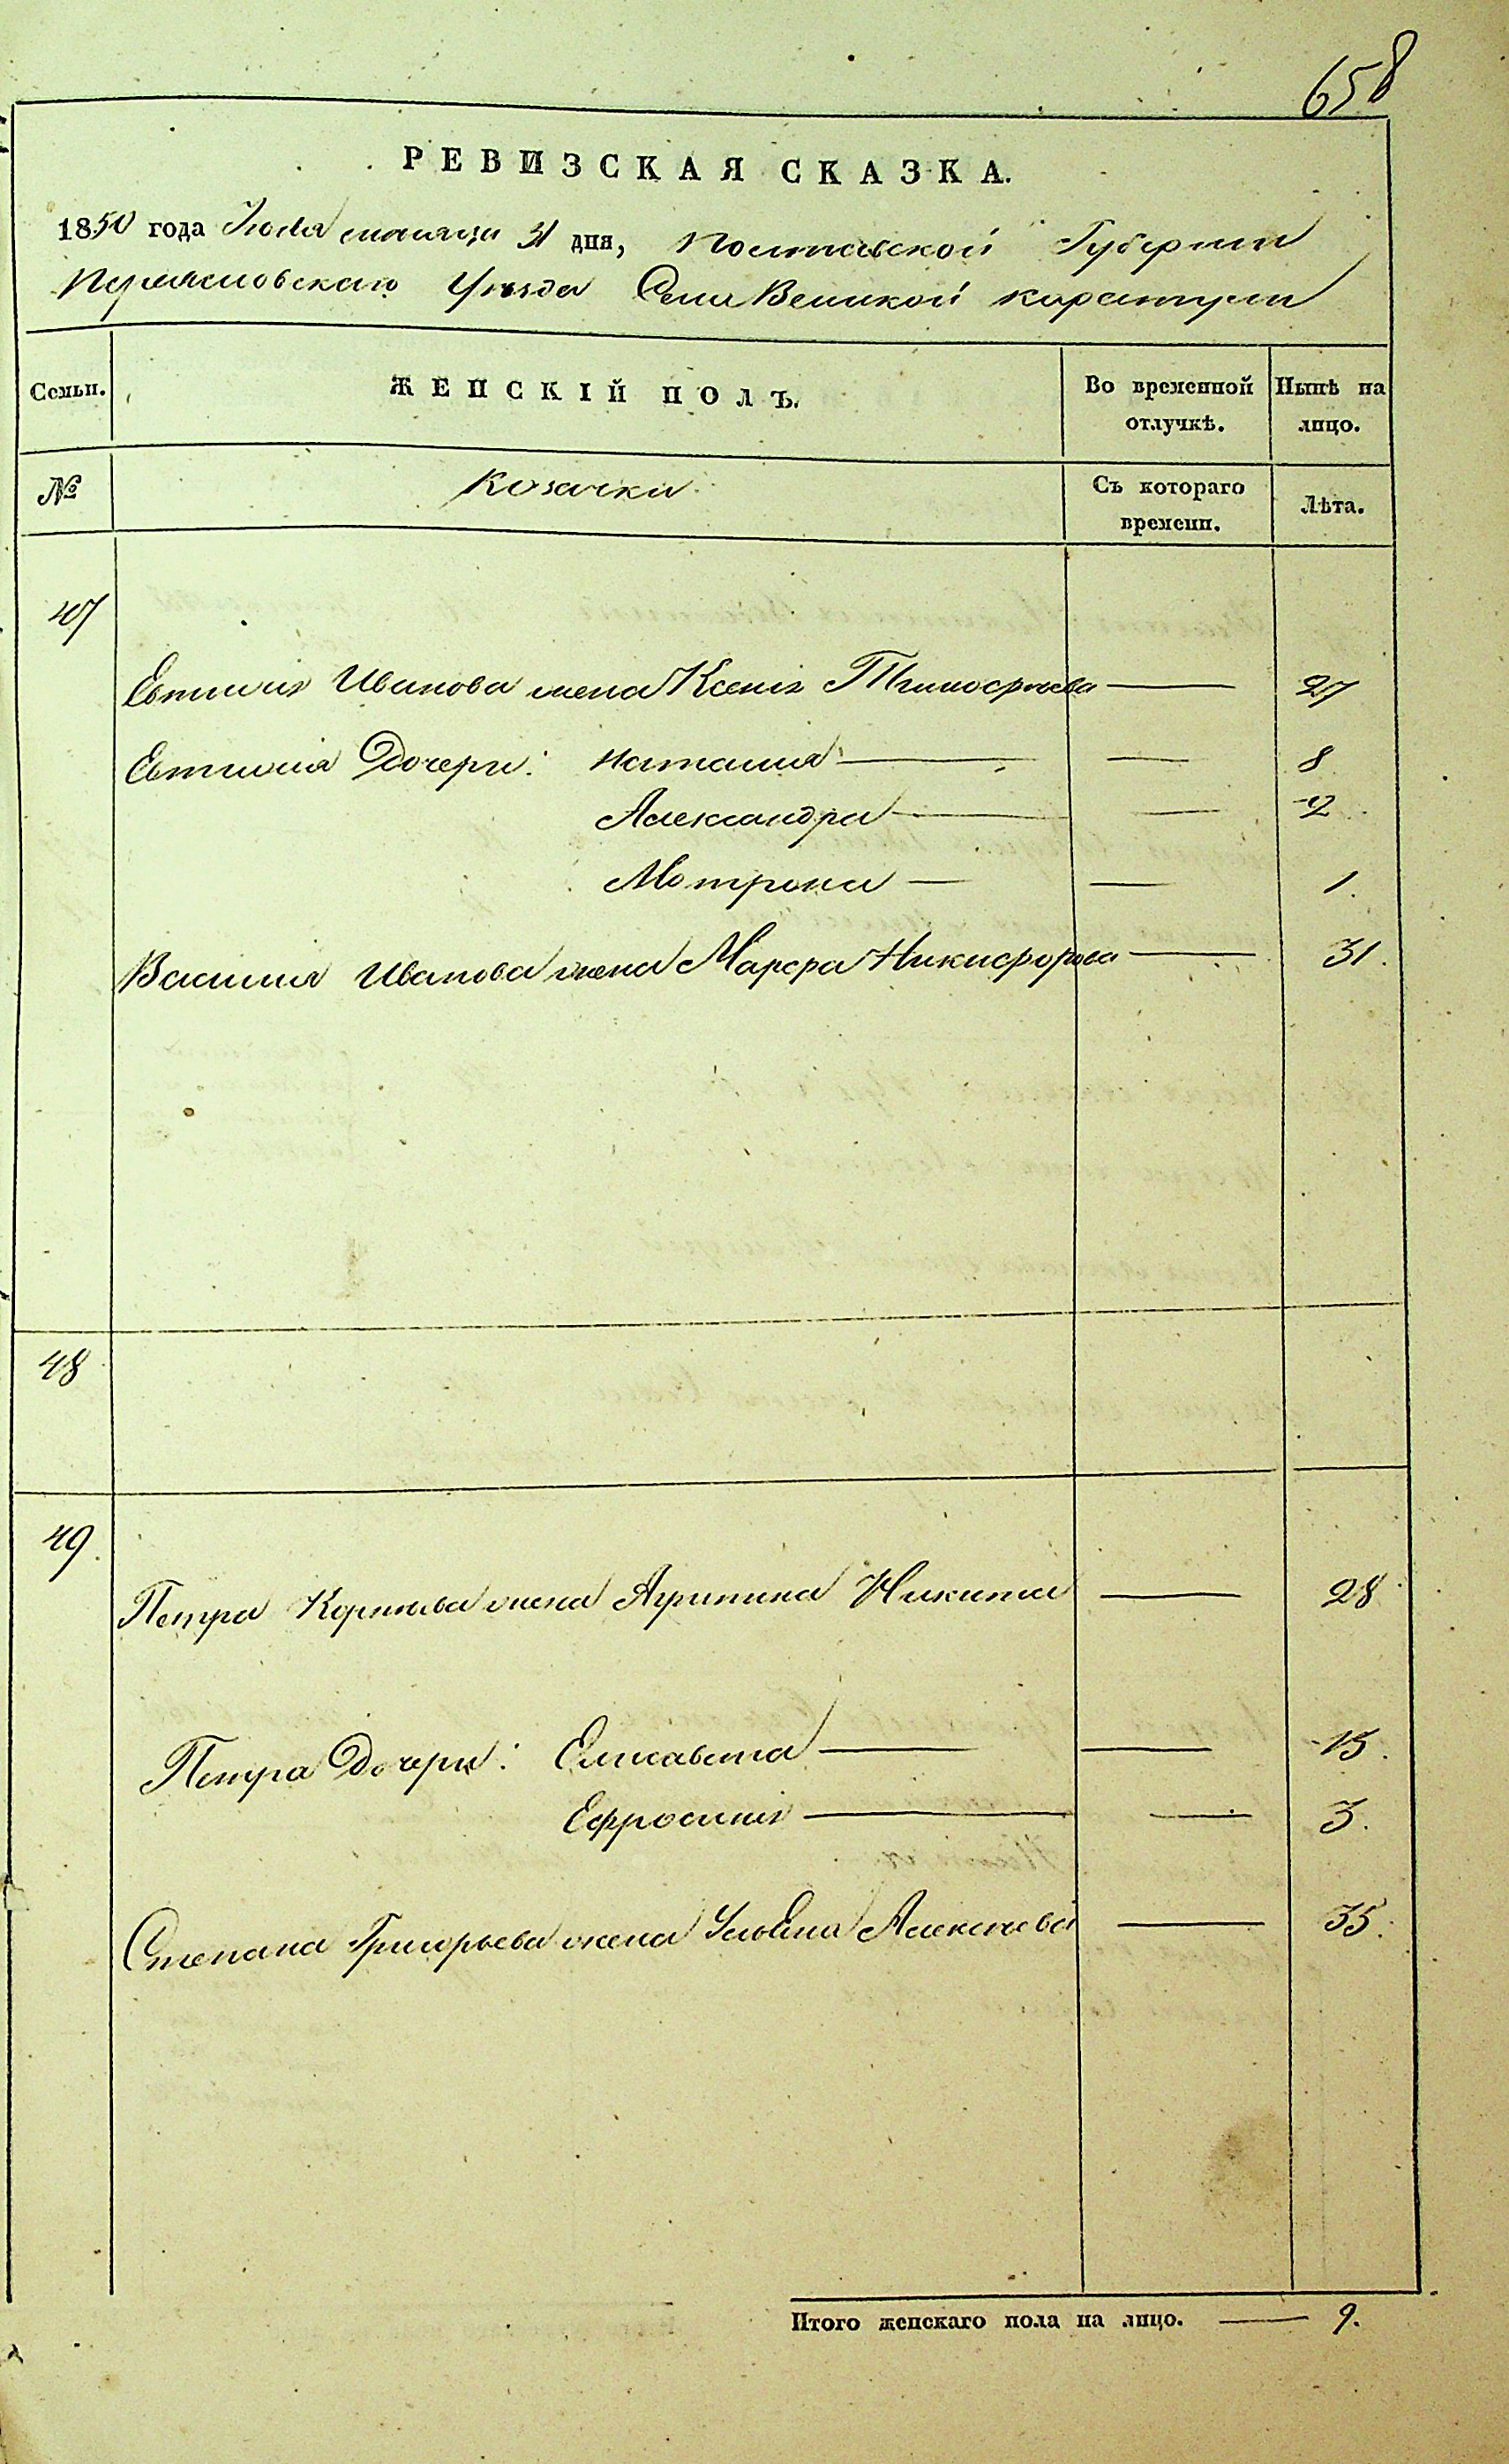 658
РЕВИЗСКАЯ СКАЗКА.
1850 года Июля месяца 31 дня, Полтавской Губернии
Переяславского Уезда Села Великой каратули
Семьи. ЖЕНСКІЙ ПОЛЪ. Во временной отлучкѣ. Нынѣ на лицо.
№ Козачки Съ котораго времени. Лѣта.
47
Евтихія Иванова жена Ксенія Тимофеева — 27
Евтихія Дочери: Наталия — — 8
Александра — — 2
Мотрона — — 1.
Василия Иванова жена Марфа Никифорова — 31.
48
49.
Петра Корнева жена Агрипина Никита — 28
Петра Дочери: Елисавета — — 15.
Ефросинія — — 3.
Степана Григорьева жена Ульяна Алексеева — 35.
Итого женскаго пола на лицо. — 9.